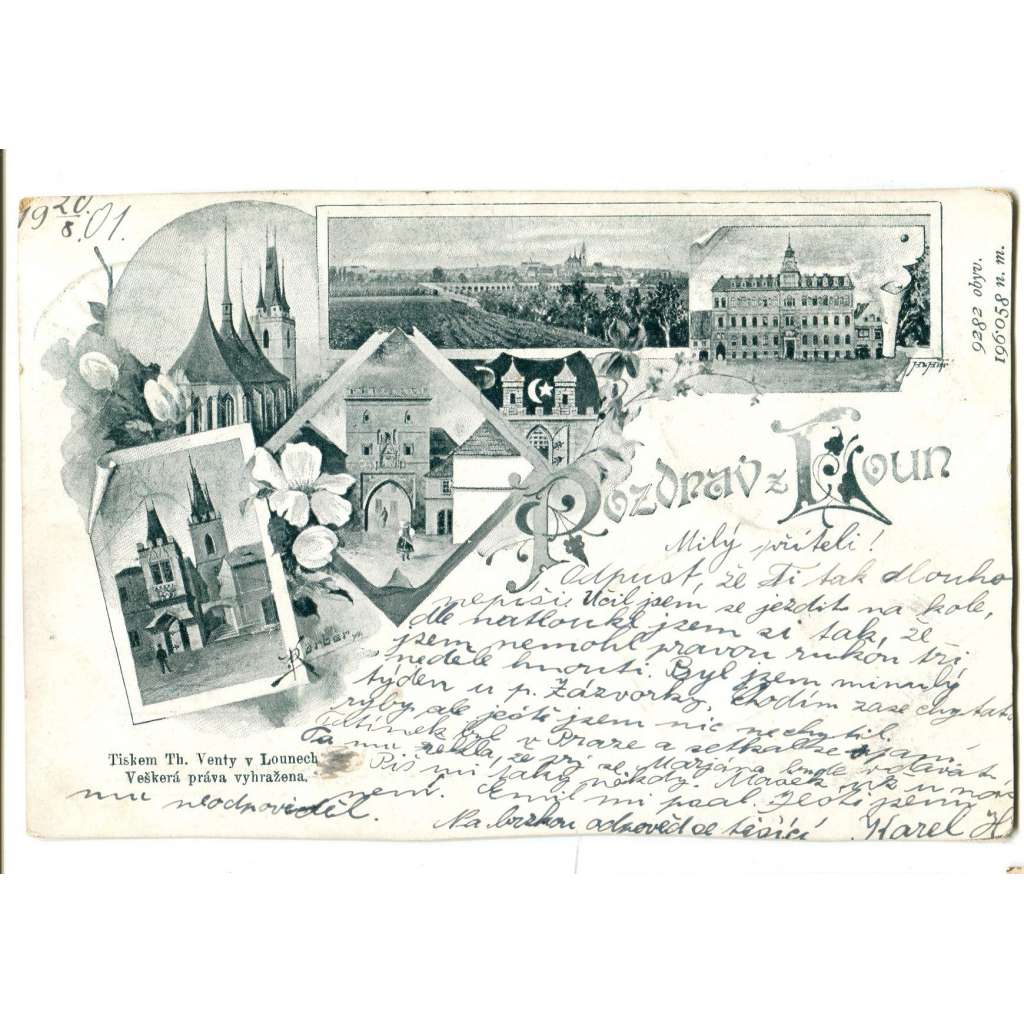 19 20/8 01.
9282 obyv.
196·058 n. m.
Pozdrav z Loun
Milý příteli!
Odpusť, že Ti tak dlouho
nepíši. Učil jsem se jezdit na kole,
dle natloukl jsem si tak, že
jsem nemohl pravou rukou tři
neděle hnouti. Byl jsem minulý
týden u p. Zázvorky. Chodím zase chytat
ryby, ale ještě jsem nic nechytil.
byl v Praze a setkal se s
Ta mu řekla, že prý se Marjána bude vdávat
Piš mi taky někdy. u nás
není. Emil mi psal. Ještě jsem
mu neodpověděl.
Na brzkou odpověď se těšící Karel H
Tiskem Th. Venty v Lounech
Veškerá práva vyhražena.